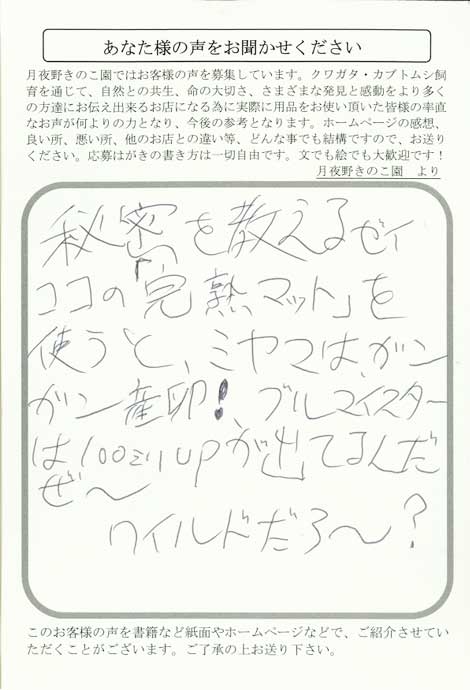 あなた様の声をお聞かせください
月夜野きのこ園ではお客様の声を募集しています。クワガタ・カブトムシ飼
育を通じて、自然との共生、命の大切さ、さまざまな発見と感動をより多く
の方達にお伝え出来るお店になる為に実際に用品をお使い頂いた皆様の率直
なお声が何よりの力となり、今後の参考となります。ホームページの感想、
良い所、悪い所、他のお店との違い等、どんな事でも結構ですので、お送り
ください。応募はがきの書き方は一切自由です。文でも絵でも大歓迎です！
月夜野きのこ園 より
秘密を教えるゼイ
ココの「完熟マット」を
使うと、ミヤマは、ガン
ガン産卵！、ブルマイスター
は100ミリupが出てるんだ
ぜ〜
ワイルドだろ〜？
このお客様の声を書籍など紙面やホームページなどで、ご紹介させてい
ただくことがございます。ご了承の上お送り下さい。